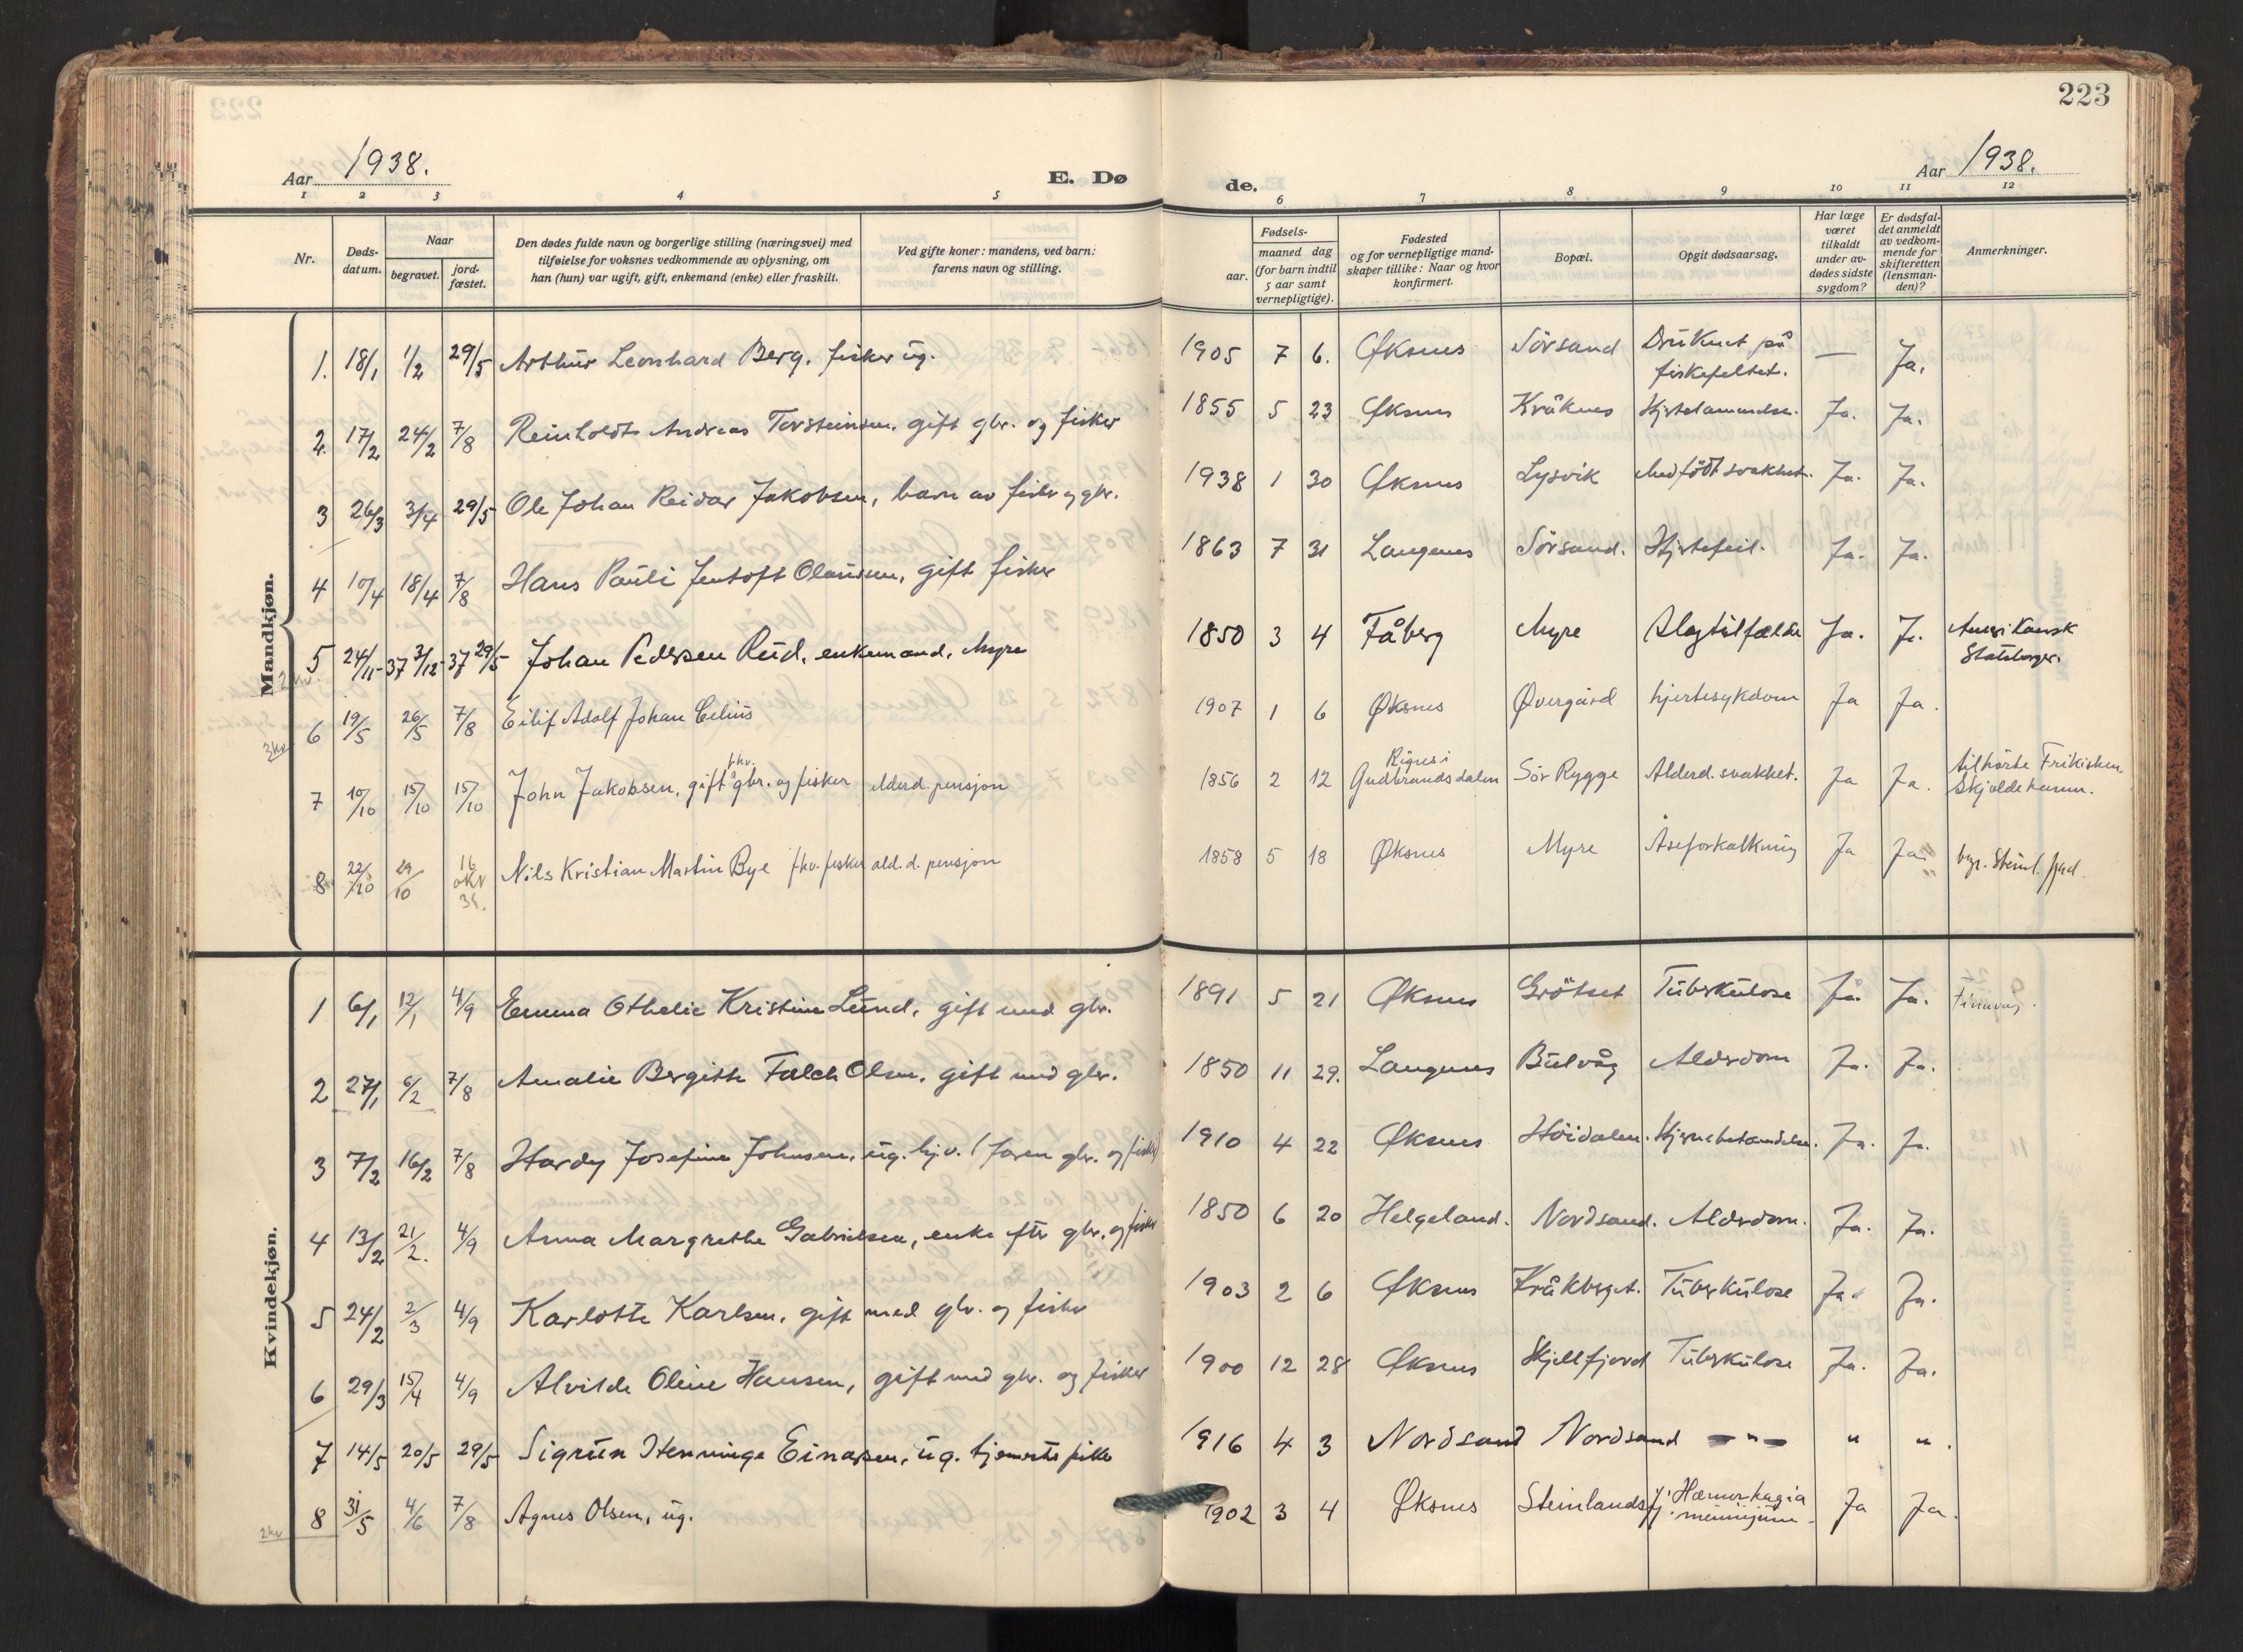 223
Aar 1938.
E. Dø
de.
Aar 1938.
1 2 3 4 5 6 7 8 9 10 11 12
Nr.
Døds-
datum.
Naar
begravet.
jord-
fæstet.
Den dødes fulde navn og borgerlige stilling (næringsvei) med
tilføielse for voksnes vedkommende av oplysning, om
han (hun) var ugift, gift, enkemand (enke) eller fraskilt.
Ved gifte koner: mandens, ved barn:
farens navn og stilling.
Fødsels-
aar.
maaned dag
(for barn indtil
5 aar samt
vernepligtige).
Fødested
og for vernepligtige mand-
skaper tillike: Naar og hvor
konfirmert.
Bopæl.
Opgit dødsaarsag.
Har læge
været
tilkaldt
under av-
dødes sidste
sygdom?
Er dødsfal-
det anmeldt
av vedkom-
mende for
skifteretten
(lensman-
den)?
Anmerkninger.
Mandkjøn.
1. 18/1 1/2 29/5 Arthur Leonhard Berg, fisker ug. 1905 7 6. Øksnes Sörsand Druknet på
fiskefeltet. — Ja.
2. 17/2 24/2 7/8 Reinholdt Andreas Torsteinsen, gift gbr. og fisker 1855 5 23 Øksnes Kråknes Ja. Ja.
3 26/3 3/4 29/5 Ole Johan Reidar Jakobsen, barn av fisker og gbr. 1938 1 30 Øksnes Lysvik Medfödt svakhet. Ja. Ja.
4 10/4 18/4 7/8 Hans Pauli Jentoft Olaussen, gift fisker 1863 7 31 Langenes Sörsand. Hjertefeil. Ja. Ja.
5 24/11-37 3/12-37 29/5 Johan Pedersen Rud, enkemand, Myre 1850 3 4 Fåberg Myre Slagtilfælde Ja. Ja. Amerikansk
Statsborger.
6 19/5 26/5 7/8 Eilif Adolf Johan Celius 1907 1 6 Øksnes Øvergård hjertesykdom Ja Ja.
7 10/10 15/10 15/10 John Jakobsen, gift fhv. gbr. og fisker Alderd. pensjon 1856 2 12 Ringnes i
Gudbrandsdalen Sör Rygge Alderd. svakhet. Ja Ja. tilhörte Frikirken
Skjoldehamn.
8 22/10 29/10 16 okt 38. Nils Kristian Martin Bye fhv. fisker ald. d. pensjon 1858 5 18 Øksnes Myre Åreforkalkning Ja Ja begr. Steinl. fjord.
Kvindekjøn.
1 6/1 12/1 4/9 Emma Othelie Kristine Lund, gift med gbr. 1891 5 21 Øksnes Grötset Tuberkulose Ja. Ja. Finnvåg.
2 27/1 6/2 7/8 Amalie Bergitte Falch Olsen, gift med gbr. 1850 11 29. Langenes Bulvåg Alderdom Ja. Ja.
3 7/2 16/2 7/8 Hardy Josefine Johnsen, ug. hjv. (faren gbr. og fisker) 1910 4 22 Øksnes Höidalen. Hjernebetændelse. Ja. Ja.
4 13/2 21/2. 4/9 Anna Margrethe Gabrielsen, enke efter gbr. og fisker 1850 6 20 Helgeland. Nordsand. Alderdom. Ja. Ja.
5 24/2 2/3 4/9 Karlotte Karlsen, gift med gbr. og fisker 1903 2 6 Øksnes Kråkberget. Tuberkulose Ja. Ja.
6 29/3 15/4 4/9 Alvilde Oline Hansen, gift med gbr. og fisker 1900 12 28 Øksnes Skjellfjord Tuberkulose Ja. Ja.
7 14/5 20/5 29/5 Sigrun Henninge Einarsen, ug. hjemmev. pike 1916 4 3 Nordsand Nordsand — " — " ".
8 31/5 4/6 7/8 Agnes Olsen, ug. 1902 3 4 Øksnes Steinlandsfj. Hæmorhagia
Ja Ja.